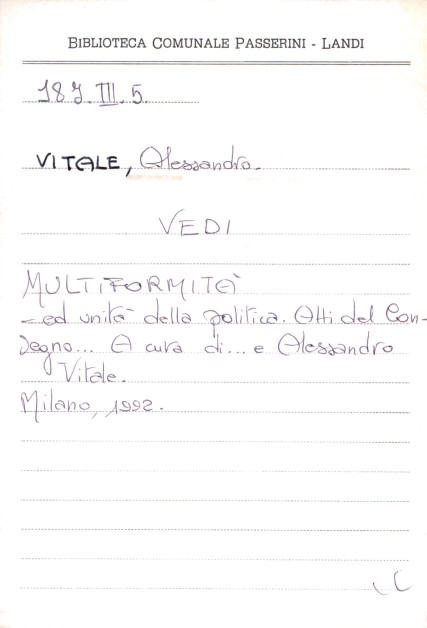 BIBLIOTECA COMUNALE PASSERINI - LANDI
187.III.5.
VITALE, Alessandro.
VEDI
MULTIFORMITÀ
- ed unità della politica. Atti del Con-
vegno... A cura di... e Alessandro
Vitale.
Milano, 1992.